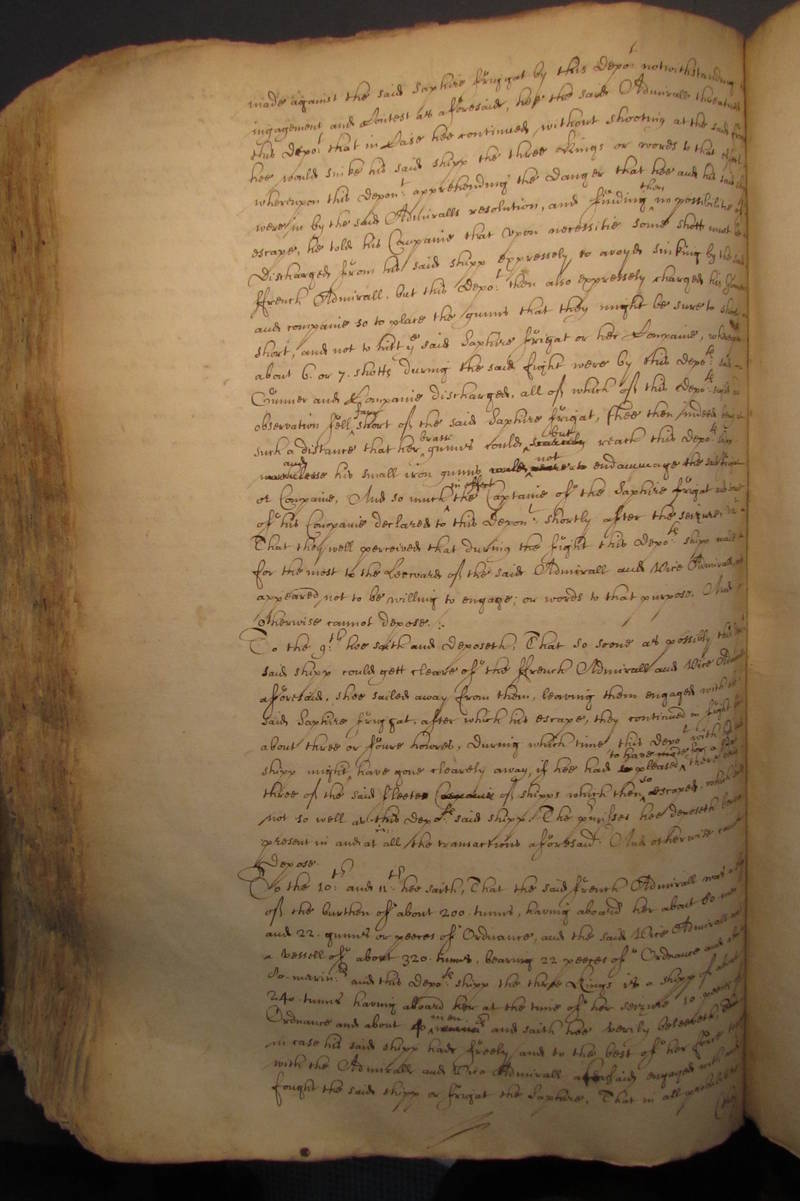 made against the said Saphire friggat by this Depot. notwithstanding
ingagement and Contest as aforesaid, hee the said Admirall threatned
this Depot. that in Case hee continued without shooting at the said
hee would sinke his said shipp the three Kings or words to that effect
whereupon this Depont. apprehending the danger that hee and his said
were in by the said Admiralls resolution, and finding then no possibilitie of
escape, he told his Companie that upon necessitie some shott must be
discharged from his said shipp expressely to avoyd sinking by the said
ffrench Admirall. but this Depot. then also expressely charged his
and companie so to place the gunns that they might be sure to shoot
short, and not to hitt ye said Saphire frigat or her Companie, whereupon
about 6. or 7. shotts during the said fight were by this Depots. said
Gunner and Companie discharged, all of which of this Depots.
observation fell farr short of the said Saphire frigat, shee then indeed being
such a distance that her brass gunns could but reach this Depots. shipp
and his small iron gunns not endammage the said
or Companie, And so much in effect the Captaine of the Saphire frigat
of his Companie declared to this Depont. shortly after the seizure
That they well perceived that during the fight this Depots. shipp
for the most to the Leeward of the said Admirall and Vice Admirall, and
appeared not to be willing to engage; or words to that purpose. And
otherwise cannot depose.
To the 9th. hee saith and deposeth, That so soone as possibly this
said shipp could gett cleare of the ffrench Admirall and Vice Admirall
aforesaid, shee sailed away from them, leaving them engaged with the
said Saphire friggat. after which his escape, they continued in fight
about three or foure howres, during which time this Depot. with his
shipp might have gone clearely away, if hee had pleased
three of the said fleete of shipps which then so escaped,
not so well as this Depots. said shipp. The premisses hee deposeth being
present in and at all the transactions aforesaid. And otherwise cannot
depose.
To the 10th. and 11th. hee saith, That the said ffrench Admirall was
of the burthen of about 200. tunns, having aboard her about 80 men
and 22. gunns or peeces of Ordnance, and the said Vice Admirall
a vessell of about 320. tunns, bearing 22 peeces of Ordnance and about
80. marinrs. and this Depots. shipp the three Kings is a shipp of about
240. tunns having aboard her at the time of her seizure 10 peeces of
Ordnance and about 40 men and saith hee verily beleeveth
in case his said shipp had freely and to the best of her
with the Admirall and Vice Admirall aforesaid engaged
fought the said shipp or frigat the Saphire, That in all